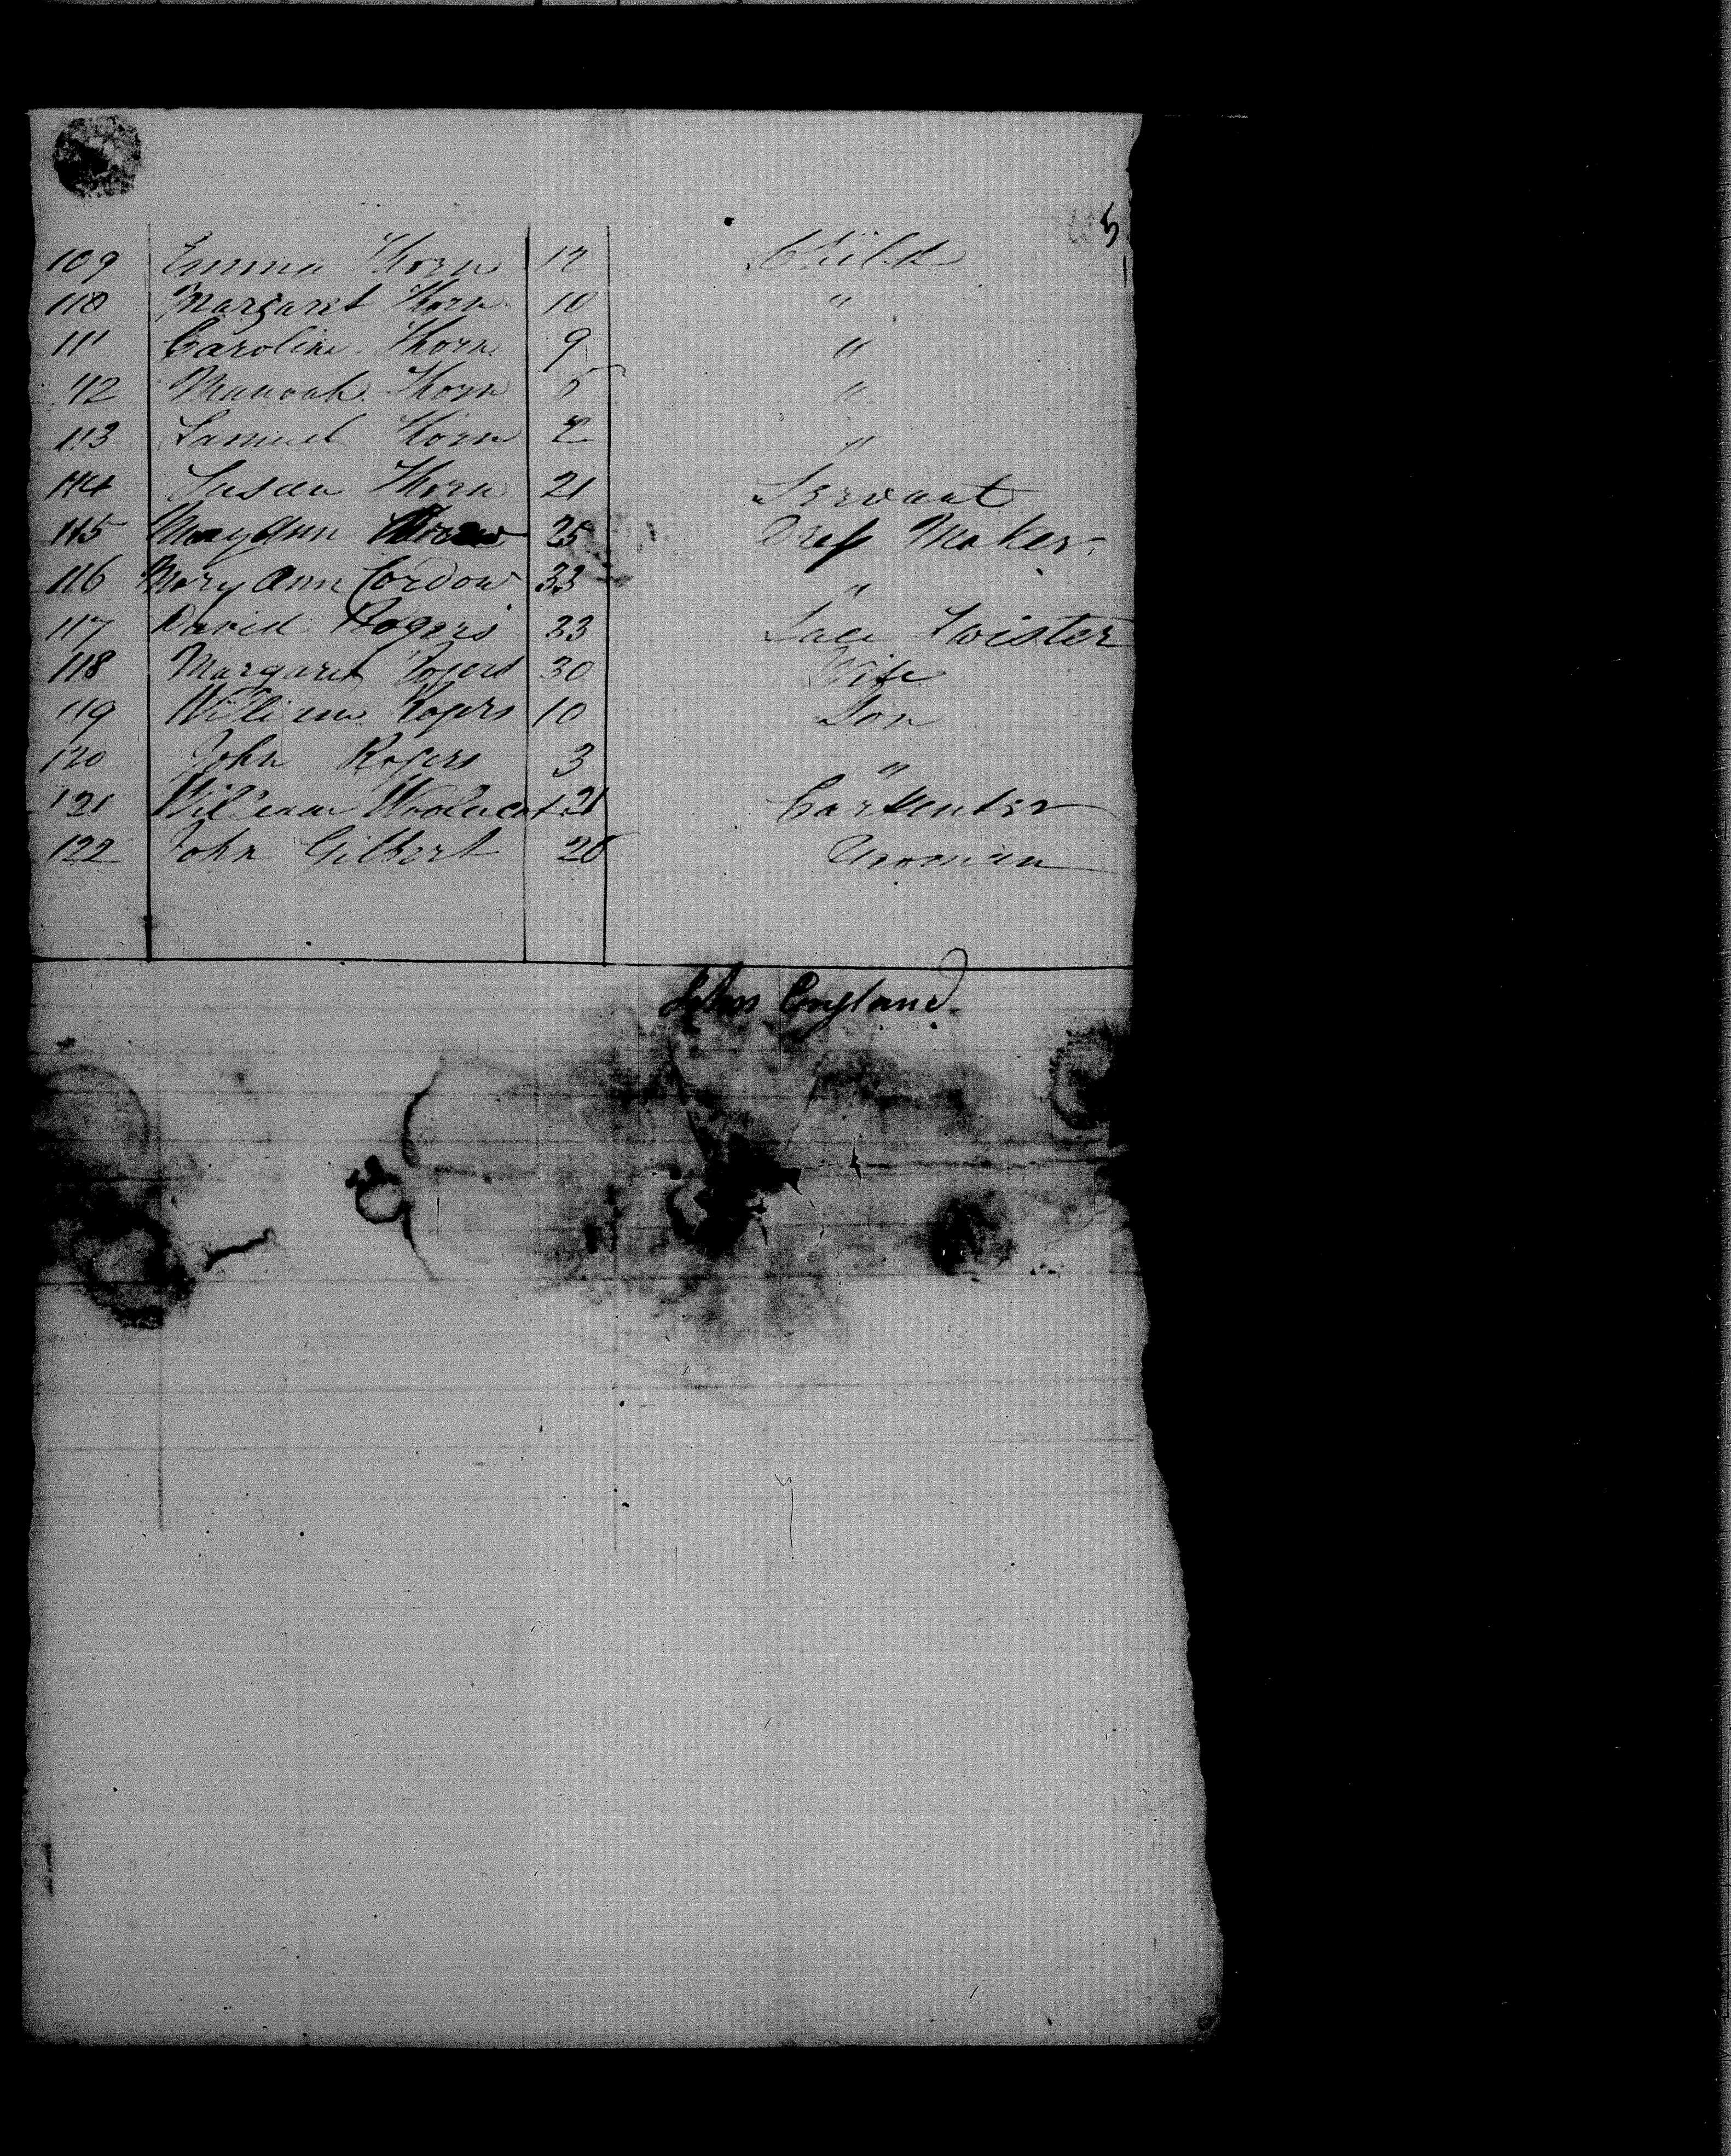 5
109 Emma Thorn 12 Child
110 Margaret Thorn 10 "
111 Caroline Thorn 9 "
112 Thorn 6 "
113 Samuel Thorn 2 "
114 Susan Thorn 21 Servant
115 Mary Ann 25 Dress Maker
116 Mary Ann Cordow 33 "
117 David Rogers 33 Lace Twister
118 Margaret Rogers 30 Wife
119 William Rogers 10 Son
120 John Rogers 3 "
121 William Woolacot 21 Carpenter
122 John Gilbert 26 Yeoman
John England